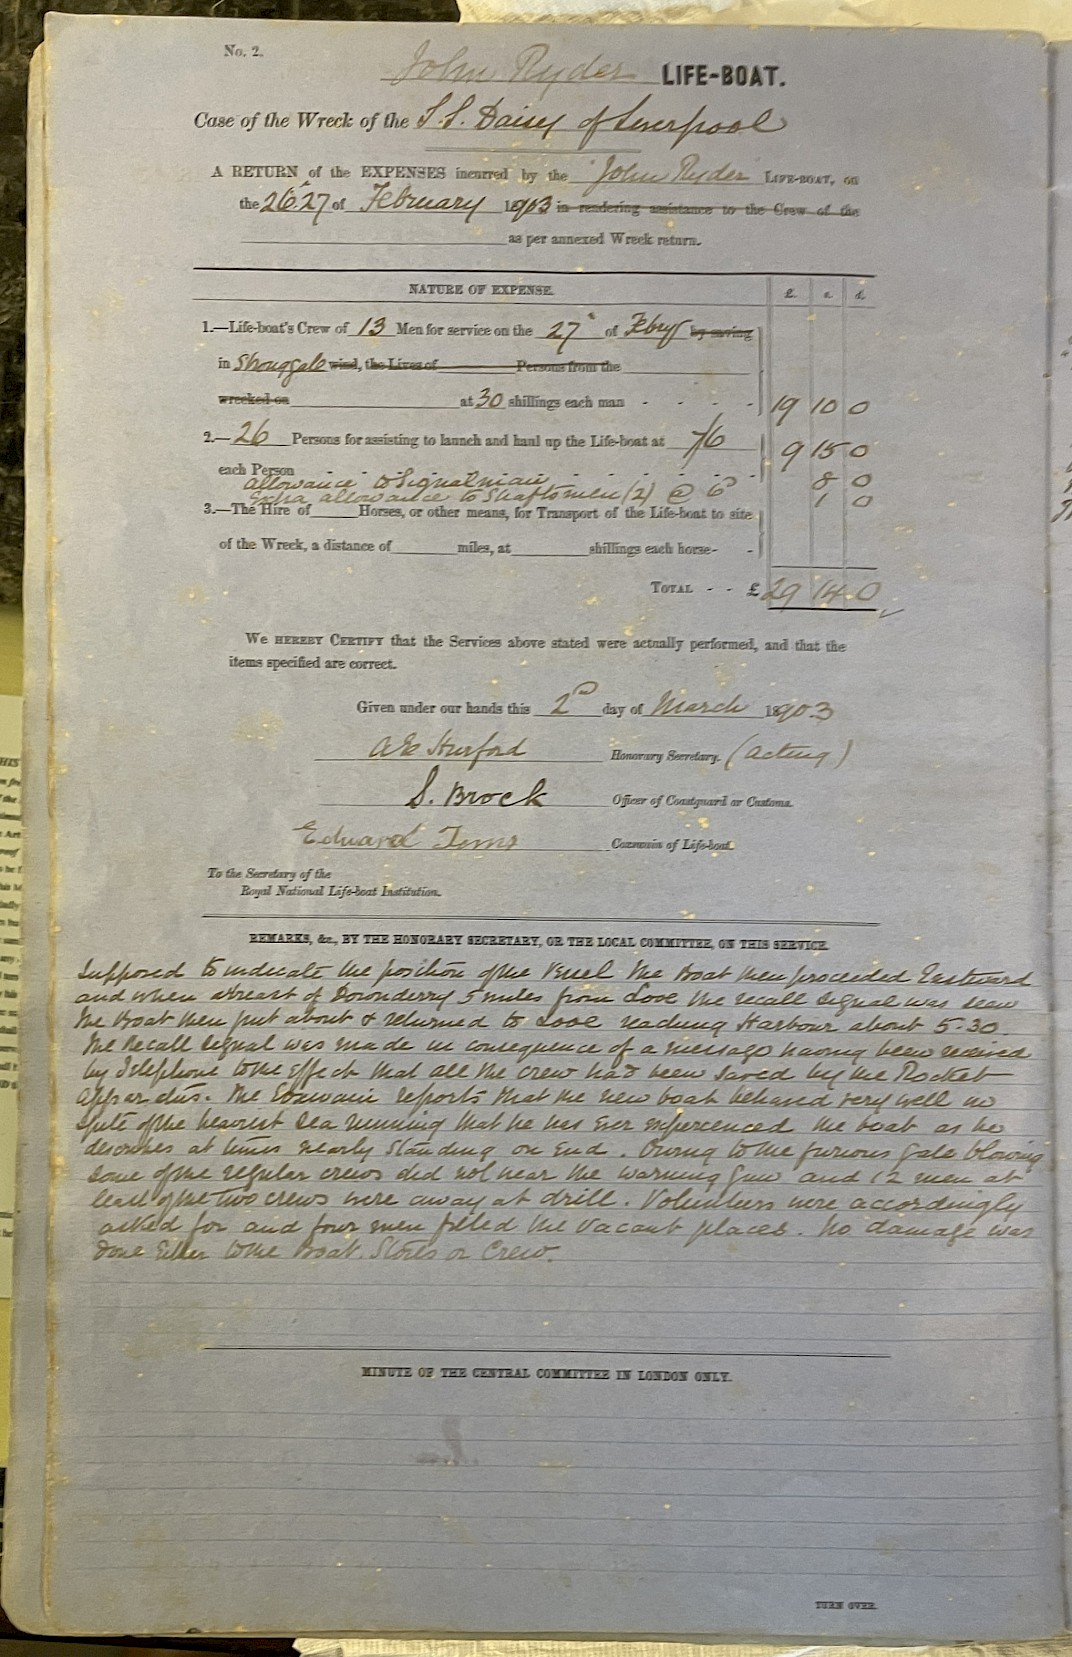 No. 2.
John Ryder LIFE-BOAT.
Case of the Wreck of the S.S. Daisy of Liverpool
A RETURN of the EXPENSES incurred by the John Ryder LIFE-BOAT, on
the 26 & 27 of February 1903 in rendering assistance to the Crew of the
as per annexed Wreck return.
NATURE OF EXPENSE. £. s. d.
1.—Life-boat's Crew of 13 Men for service on the 27th of Feby by saving
in Strong gale wind, the Lives of Persons from the
wrecked on at 30 shillings each man - - - - 19 10 0
2.—26 Persons for assisting to launch and haul up the Life-boat at 7/6 9 15 0
each Person
allowance to Signalman 8 0
Extra allowance to Shaftsmen (2) @ 6d 1 0
3.—The Hire of Horses, or other means, for Transport of the Life-boat to site
of the Wreck, a distance of miles, at shillings each horse- -
TOTAL - - £ 29 14 0
We HEREBY CERTIFY that the Services above stated were actually performed, and that the
items specified are correct.
Given under our hands this 2nd day of March 1903
A E Hurford Honorary Secretary. (acting)
S. Brock Officer of Coastguard or Customs.
Edward Toms Coxswain of Life-boat.
To the Secretary of the
Royal National Life-boat Institution.
REMARKS, &c., BY THE HONORARY SECRETARY, OR THE LOCAL COMMITTEE, ON THIS SERVICE.
Supposed to indicate the position of the Vessel the Boat then proceeded Eastward
and when abreast of Downderry 5 miles from Looe the recall signal was seen
the Boat then put about & returned to Looe reaching Harbour about 5-30.
The Recall Signal was made in consequence of a message having been received
by Telephone to the Effect that all the crew had been saved by the Rocket
Apparatus. The Coxswain reports that the new boat behaved very well in
spite of the heaviest sea running that he has ever experienced the boat as he
describes at times nearly standing on end. Owing to the furious gale blowing
some of the regular crews did not hear the warning gun and 12 men at
least of the two crews were away at drill. Volunteers were accordingly
asked for and four men filled the vacant places. No damage was
done Either to the Boat Stores or Crew.
MINUTE OF THE CENTRAL COMMITTEE IN LONDON ONLY.
TURN OVER.